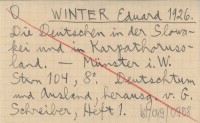 WINTER Eduard 1926.
Die Deutschen in der Slowa-
kei und in Karpathoruss-
land. — Münster i. W.
Strn 104, 8°. Deutschtum
und Ausland, herausg. v. G.
Schreiber, Heft 1.